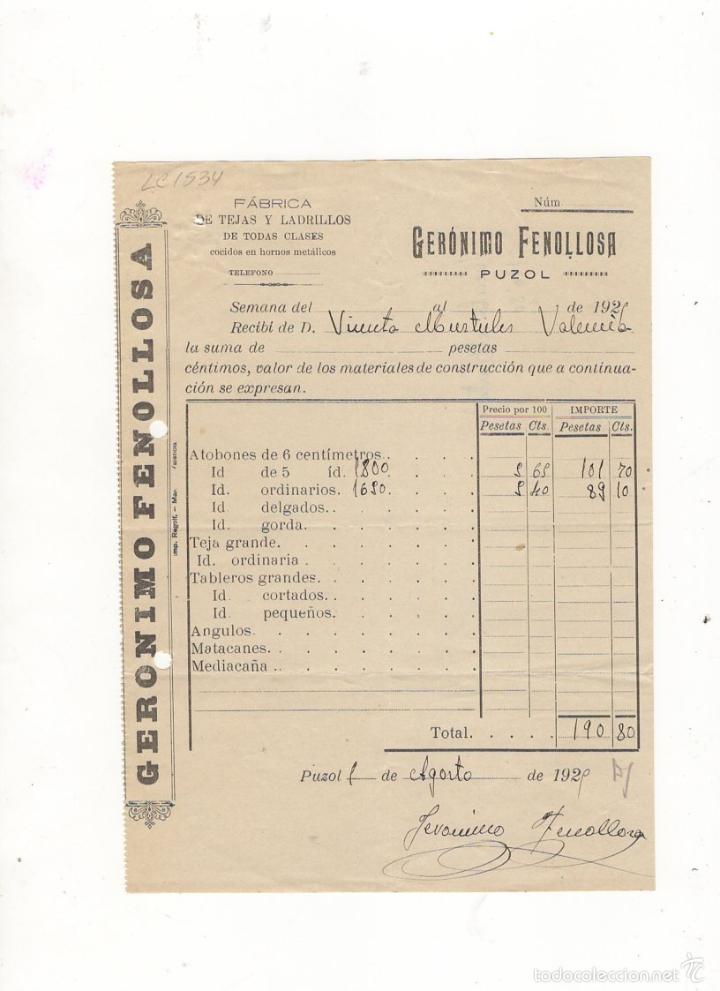 LC1534
GERONIMO FENOLLOSA
FÁBRICA
DE TEJAS Y LADRILLOS
DE TODAS CLASES
cocidos en hornos metálicos
TELEFONO
Núm
GERÓNIMO FENOLLOSA
PUZOL
Semana del al de 192
Recibí de D. Vicente Valencia
la suma de pesetas
céntimos, valor de los materiales de construcción que a continua-
ción se expresan.
Precio por 100 IMPORTE
Pesetas Cts. Pesetas Cts.
Atobones de 6 centímetros
Id de 5 íd. 1800 5 65 101 70
Id. ordinarios. 1650 5 40 89 10
Id delgados
Id. gorda.
Teja grande.
Id. ordinaria
Tableros grandes.
Id cortados.
Id pequeños.
Angulos
Matacanes.
Mediacaña
Total. 190 80
Puzol de Agosto de 192
Jeronimo Fenollosa
Imp. Regolf.
todocoleccion.net